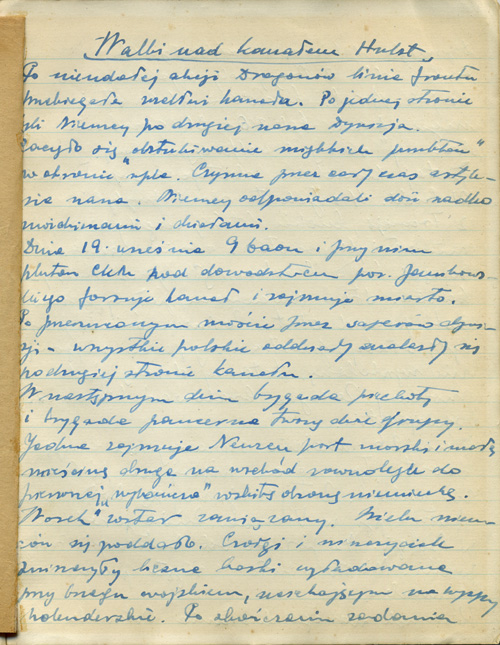 Walki nad kanałem Hulst
Po nieudałej akcji Dragonów linia frontu
przebiegała wzdłuż kanału. Po jednej stronie
byli Niemcy po drugiej nasza Dywizja.
Zaczęło się "obstukiwanie miękkich punktów"
w obronie npla. Czynna przez cały czas artyle-
ria nasza. Niemcy odpowiadali dość rzadko
moździerzami i działami.
Dnia 19. września 9 baon i przy nim
pluton Ckm pod dowództwem por. Jambows-
kiego forsuje kanał i zajmuje miasto.
Po przerzuconym moście przez saperów dywi-
zji - wszystkie polskie oddziały znalazły się
po drugiej stronie kanału.
W następnym dniu brygada piechoty
i brygada pancerna tworzą dwie grupy.
Jedna zajmuje Neuzen port morski i małą
mieścinę druga na wschód równolegle do
pierwszej, "wybawiona" rozbitą obroną niemiecką.
"Worek" został zawiązany. Wielu niem-
ców się poddało. Czołgi i
zniszczyły liczne barki wyładowane
przy brzegu wojskiem, uciekającym na wyspy
holenderskie. Po skończeniu zadania